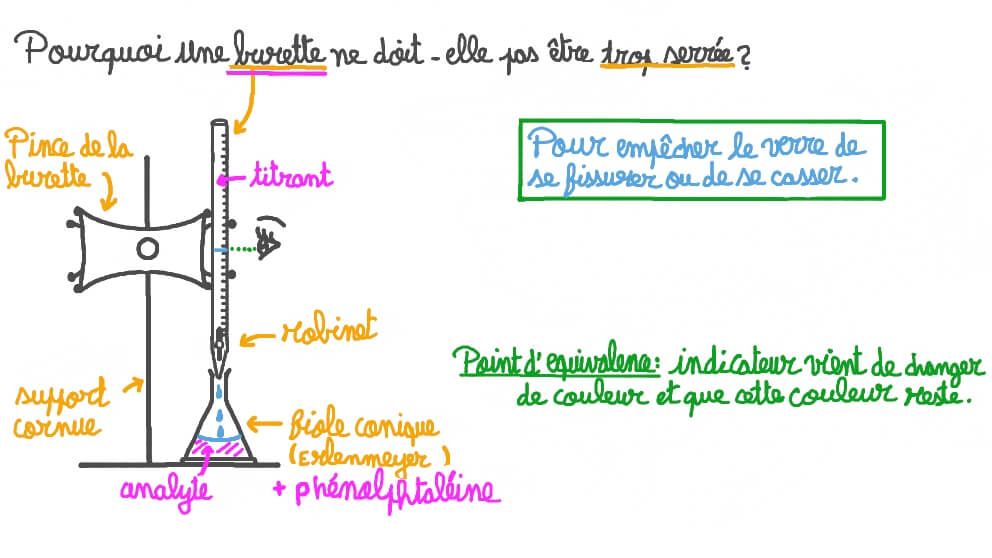 Pourquoi une burette ne doit-elle pas être trop serrée ?
Pince de la
burette
titrant
Pour empêcher le verre de
se fissurer ou de se casser.
robinet
Point d'equivalence : indicateur vient de changer
de couleur et que cette couleur reste.
support
cornue
fiole conique
(Erlenmeyer)
analyte
+ phénolphtaléine